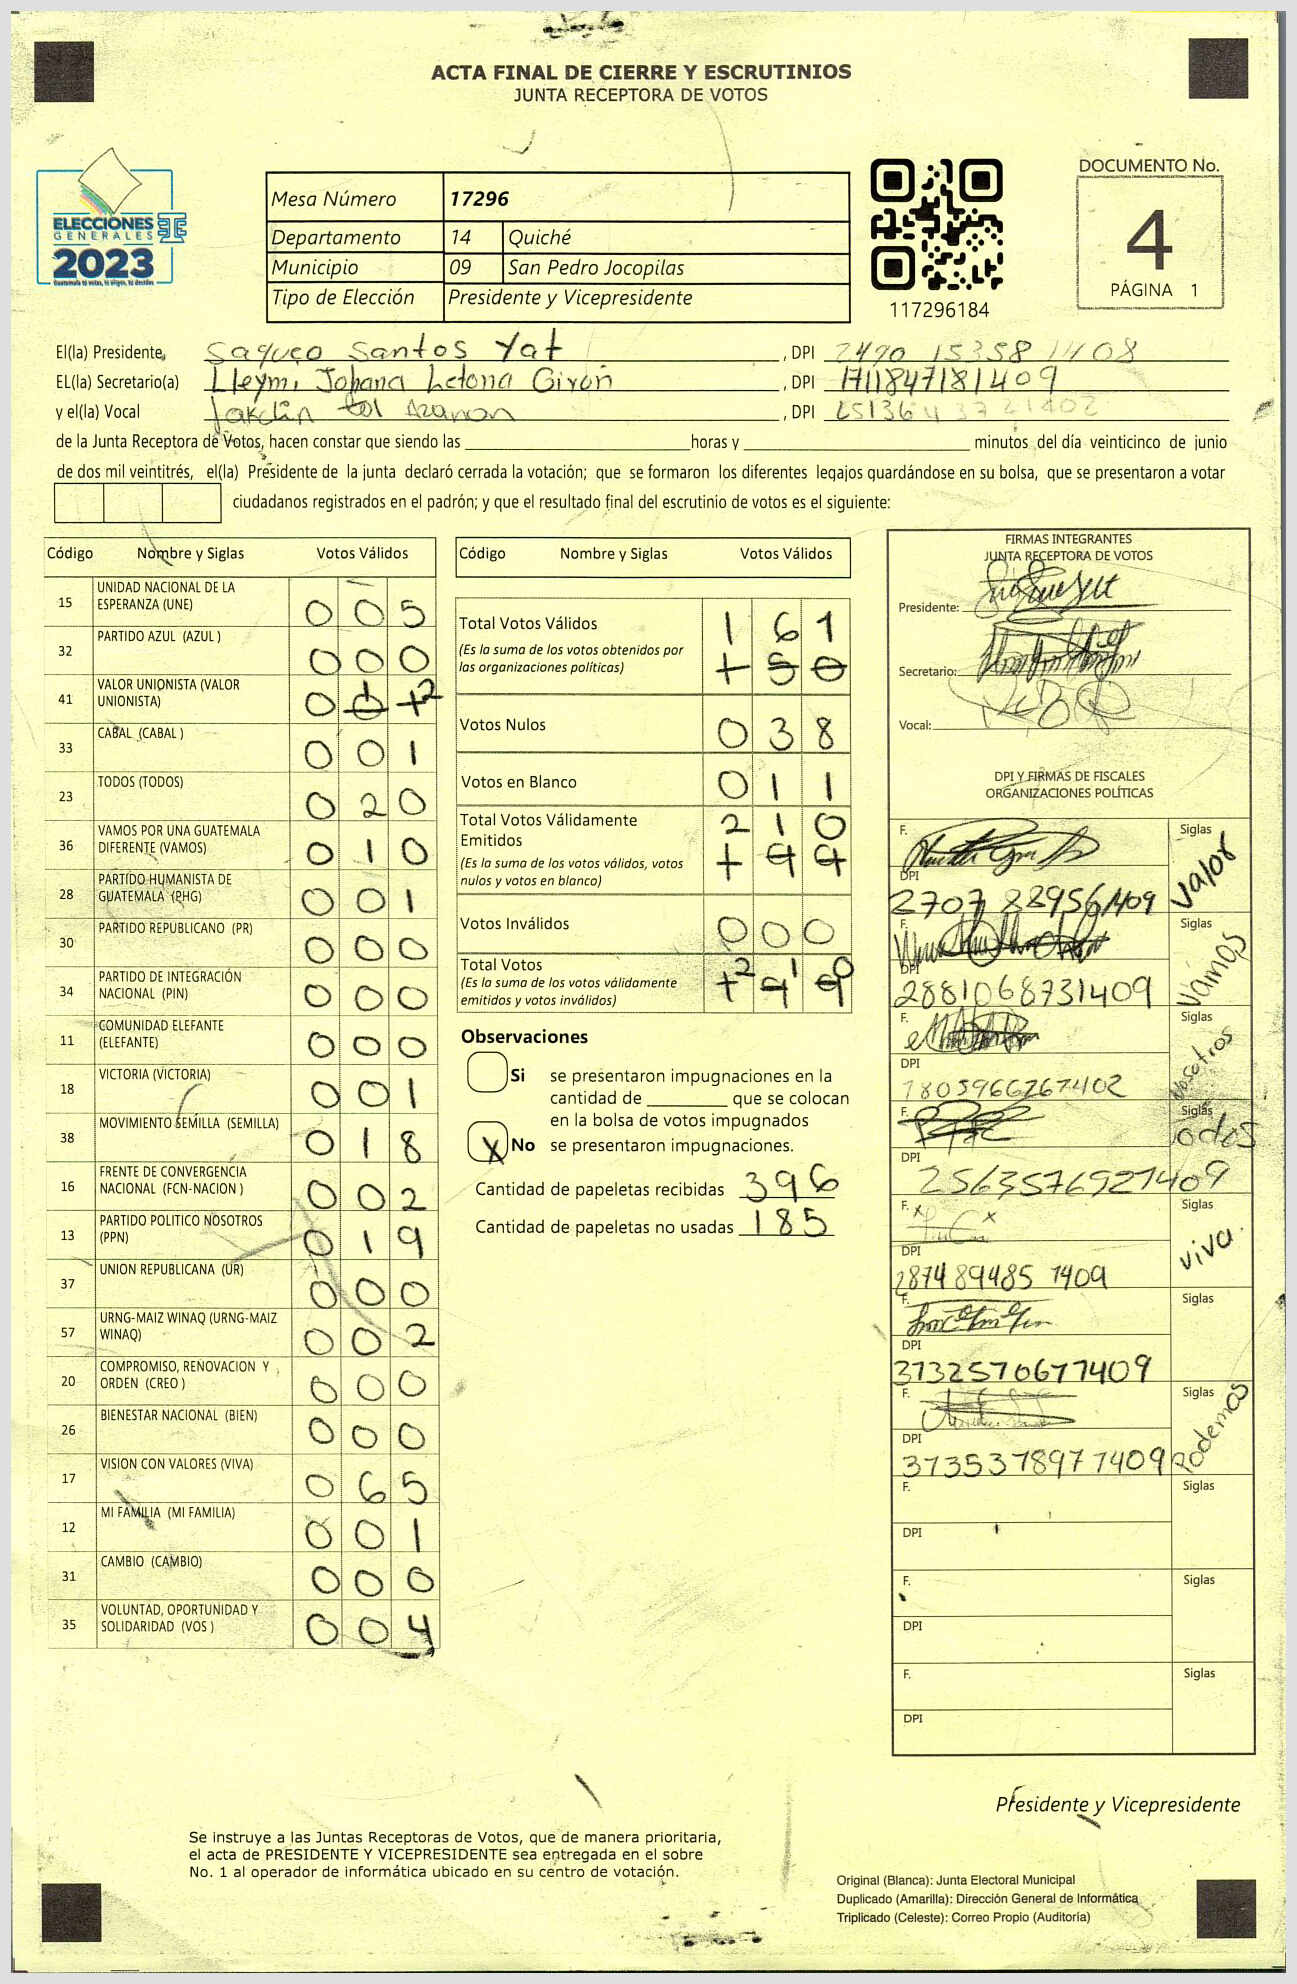 ACTA FINAL DE CIERRE Y ESCRUTINIOS
JUNTA RECEPTORA DE VOTOS
ELECCIONES
GENERALES
2023
Guatemala tú votas, tú eliges, tú decides
Mesa Número 17296
Departamento 14 Quiché
Municipio 09 San Pedro Jocopilas
Tipo de Elección Presidente y Vicepresidente
117296184
DOCUMENTO No.
4
PÁGINA 1
El(la) Presidente, Saqueo Santos Yat , DPI 2490 15358 1408
EL(la) Secretario(a) Lleymi Johana Letona Girón , DPI 1711847181409
y el(la) Vocal , DPI
de la Junta Receptora de Votos, hacen constar que siendo las horas y minutos del día veinticinco de junio
de dos mil veintitrés, el(la) Presidente de la junta declaró cerrada la votación; que se formaron los diferentes legajos guardándose en su bolsa, que se presentaron a votar
ciudadanos registrados en el padrón; y que el resultado final del escrutinio de votos es el siguiente:
Código Nombre y Siglas Votos Válidos
15 UNIDAD NACIONAL DE LA
ESPERANZA (UNE) 0 0 5
32 PARTIDO AZUL (AZUL ) 0 0 0
41 VALOR UNIONISTA (VALOR
UNIONISTA) 0 1 2
33 CABAL (CABAL ) 0 0 1
23 TODOS (TODOS) 0 2 0
36 VAMOS POR UNA GUATEMALA
DIFERENTE (VAMOS) 0 1 0
28 PARTIDO HUMANISTA DE
GUATEMALA (PHG) 0 0 1
30 PARTIDO REPUBLICANO (PR) 0 0 0
34 PARTIDO DE INTEGRACIÓN
NACIONAL (PIN) 0 0 0
11 COMUNIDAD ELEFANTE
(ELEFANTE) 0 0 0
18 VICTORIA (VICTORIA) 0 0 1
38 MOVIMIENTO SEMILLA (SEMILLA) 0 1 8
16 FRENTE DE CONVERGENCIA
NACIONAL (FCN-NACION ) 0 0 2
13 PARTIDO POLITICO NOSOTROS
(PPN) 0 1 9
37 UNION REPUBLICANA (UR) 0 0 0
57 URNG-MAIZ WINAQ (URNG-MAIZ
WINAQ) 0 0 2
20 COMPROMISO, RENOVACION Y
ORDEN (CREO ) 0 0 0
26 BIENESTAR NACIONAL (BIEN) 0 0 0
17 VISION CON VALORES (VIVA) 0 6 5
12 MI FAMILIA (MI FAMILIA) 0 0 1
31 CAMBIO (CAMBIO) 0 0 0
35 VOLUNTAD, OPORTUNIDAD Y
SOLIDARIDAD (VOS ) 0 0 4
Código Nombre y Siglas Votos Válidos
Total Votos Válidos 1 6 1
(Es la suma de los votos obtenidos por
las organizaciones políticas) 1 5 0
Votos Nulos 0 3 8
Votos en Blanco 0 1 1
Total Votos Válidamente
Emitidos 2 1 0
(Es la suma de los votos válidos, votos
nulos y votos en blanco) 1 9 9
Votos Inválidos 0 0 0
Total Votos 2 1 0
(Es la suma de los votos válidamente
emitidos y votos inválidos) 1 9 9
Observaciones
Si se presentaron impugnaciones en la
cantidad de que se colocan
en la bolsa de votos impugnados
X No se presentaron impugnaciones.
Cantidad de papeletas recibidas 396
Cantidad de papeletas no usadas 185
FIRMAS INTEGRANTES
JUNTA RECEPTORA DE VOTOS
Presidente:
Secretario:
Vocal:
DPI Y FIRMAS DE FISCALES
ORGANIZACIONES POLÍTICAS
F. Siglas Valor
DPI
2707 889561409
F. Siglas Vamos
DPI
2881068731409
F. Siglas Nosotros
DPI
1805966267402
F. Siglas odos
DPI
2563576921409
F. Siglas viva.
DPI
2874 89485 1409
F. Siglas
DPI
3732570671409
F. Siglas Podemos
DPI
3735378971409
F. Siglas
DPI
F. Siglas
DPI
F. Siglas
DPI
Presidente y Vicepresidente
Se instruye a las Juntas Receptoras de Votos, que de manera prioritaria,
el acta de PRESIDENTE Y VICEPRESIDENTE sea entregada en el sobre
No. 1 al operador de informática ubicado en su centro de votación.
Original (Blanca): Junta Electoral Municipal
Duplicado (Amarilla): Dirección General de Informática
Triplicado (Celeste): Correo Propio (Auditoría)